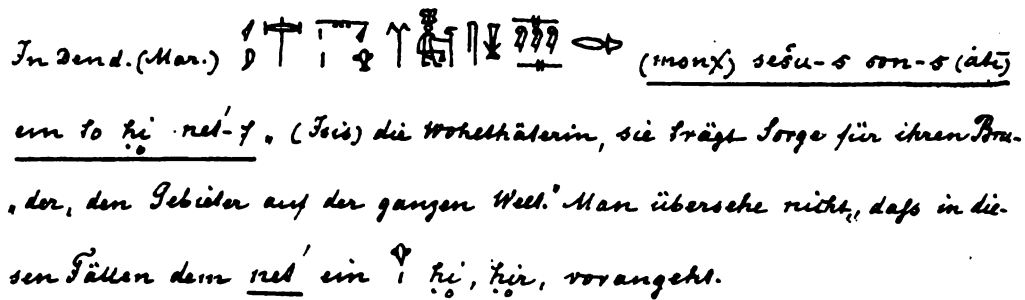 In Dend. (Mar.) (monχ) sešu-s son-s (áti)
em to ḥi net'-f „(Isis) die Wohlthäterin, sie trägt Sorge für ihren Bru-
„der, den Gebieter auf der ganzen Welt." Man übersehe nicht, daſs in die-
sen Fällen dem net' ein ḥi, ḥir, vorangeht.